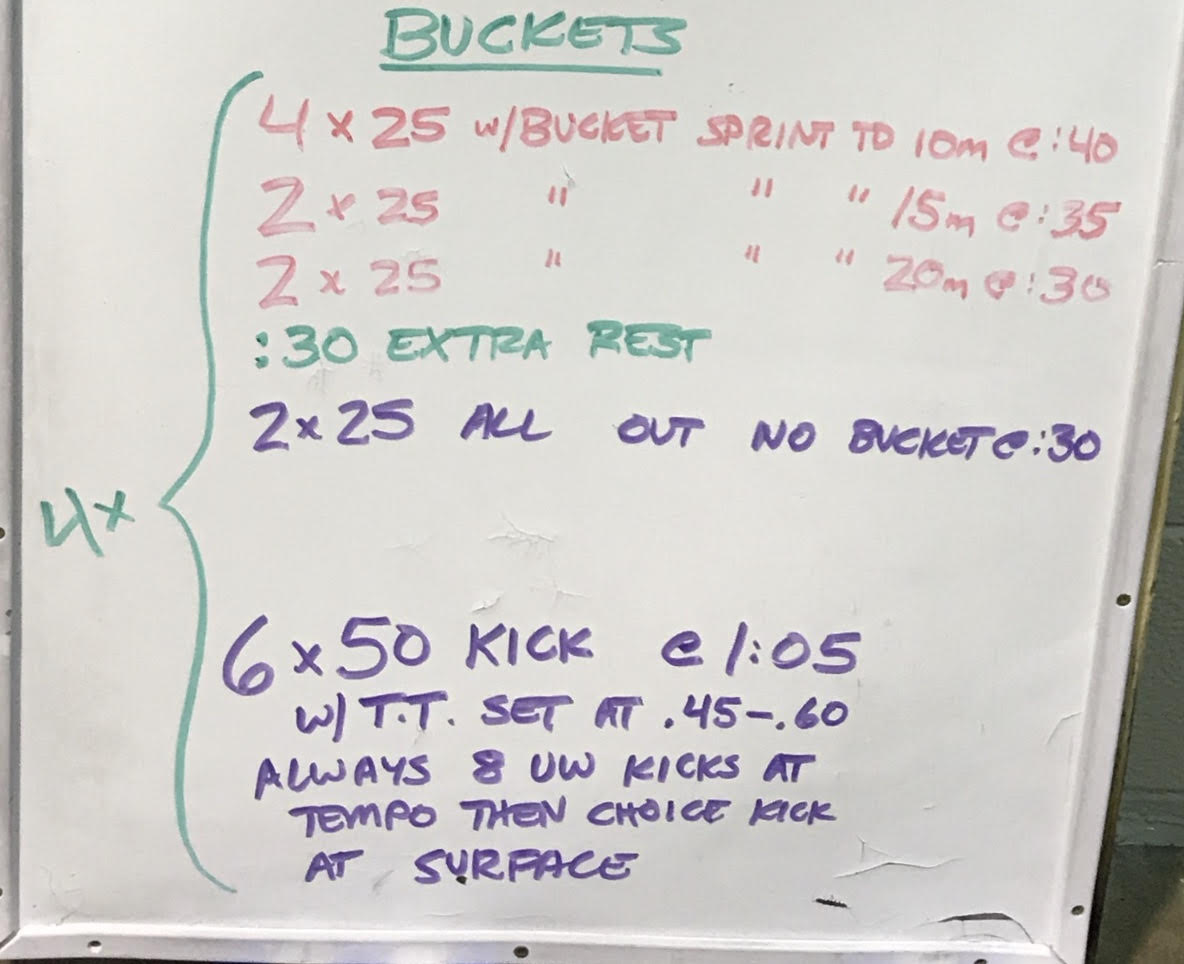 BUCKETS
4 x 25 w/BUCKET SPRINT TO 10m @ :40
2 x 25 " " " 15m @ :35
2 x 25 " " " 20m @ :30
:30 EXTRA REST
2 x 25 ALL OUT NO BUCKET @ :30
4x
6 x 50 KICK @ 1:05
W/ T.T. SET AT .45-.60
ALWAYS 8 UW KICKS AT
TEMPO THEN CHOICE KICK
AT SURFACE